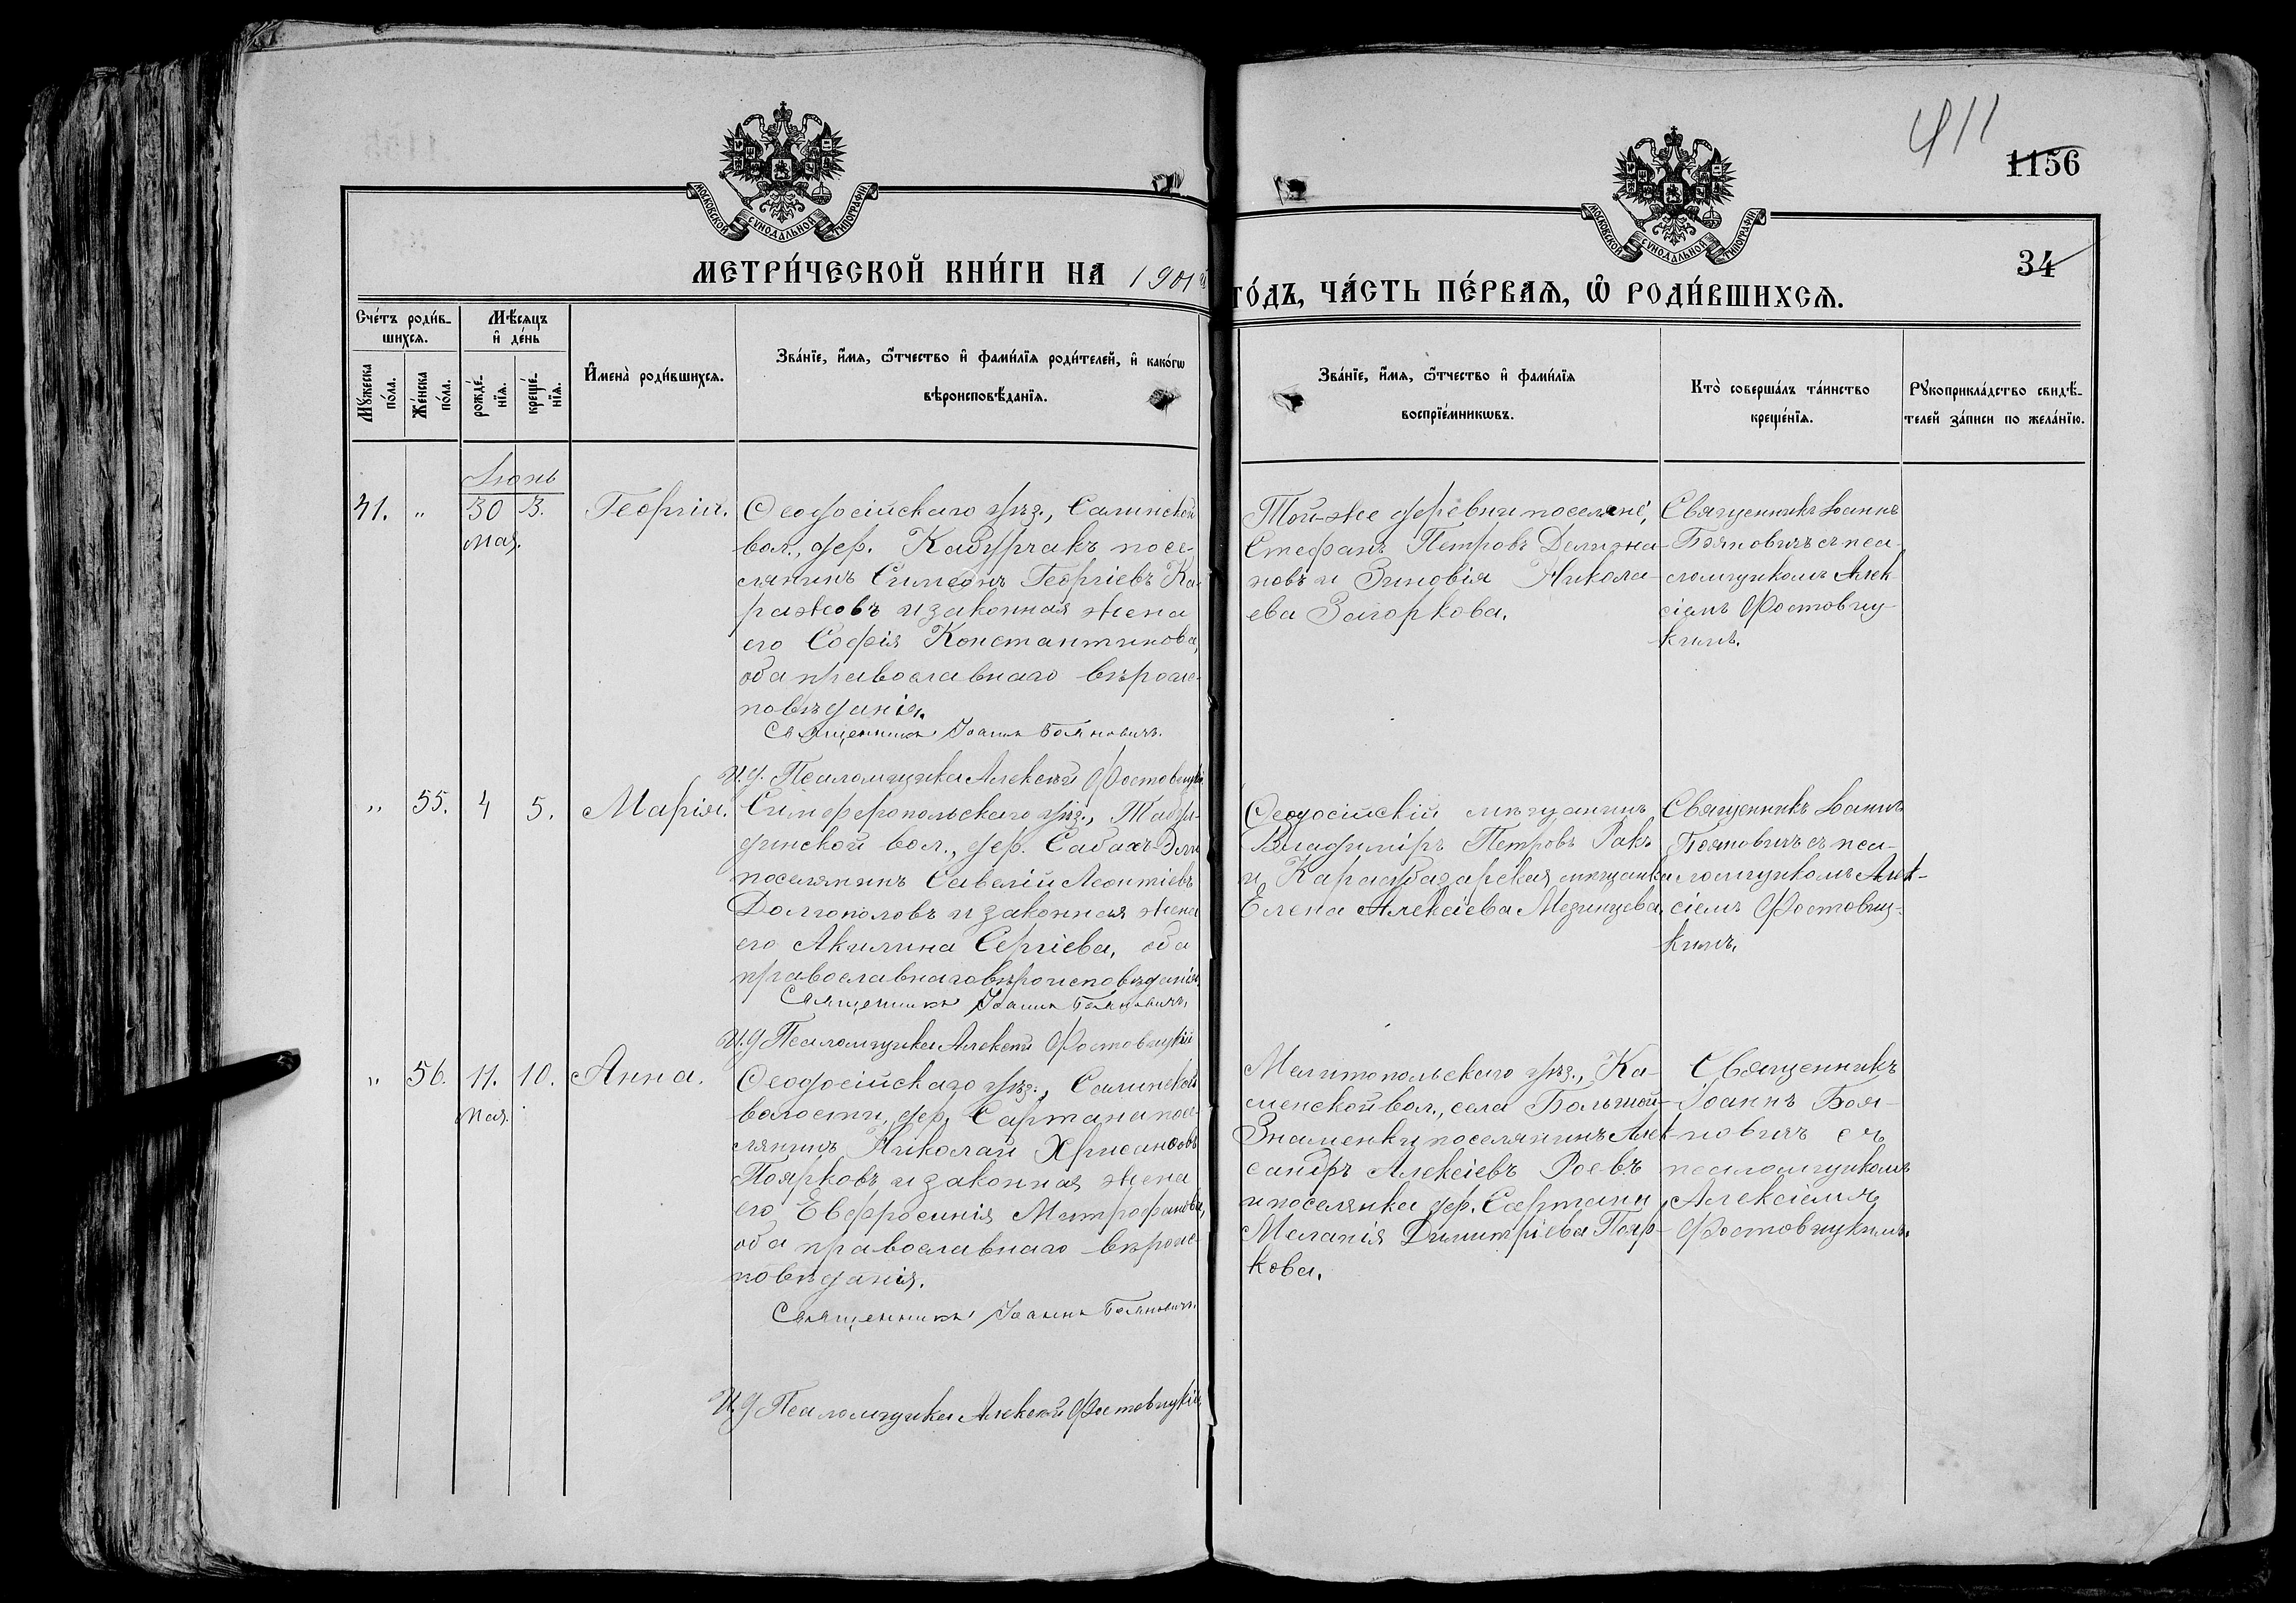 411
1156
34
МОСКОВСКОЙ СѴНОДАЛЬНОЙ ТИПОГРАФІИ
МОСКОВСКОЙ СѴНОДАЛЬНОЙ ТИПОГРАФІИ
МЕТРИ́ЧЕСКОЙ КНИ́ГИ НА 1901 й
ГО́ДЪ, ЧА́СТЬ ПЕ́РВАѦ, Ѡ РОДИ́ВШИХСѦ.
Сче́тъ роди́в-
шихсѧ.
Мꙋжеска по́ла.
Же́нска по́ла.
Мѣ́сѧцъ
и де́нь
рожде́-
нїѧ.
креще́-
нїѧ.
И҆мена̀ роди́вшихсѧ.
Зва́нїе, и҆́мѧ, ѻ҆́тчество и҆ фами́лїѧ роди́телей, и҆ како́гѡ
вѣроисповѣ́данїѧ.
Зва́нїе, и҆́мѧ, ѻ҆́тчество и҆ фами́лїѧ
воспрїе́мникѡвъ.
Кто̀ соверша́лъ та́инство
креще́нїѧ.
Рꙋкоприкла́дство свидѣ́-
телей за́писи по жела́нїю.
Іюнь
41. " 30 3. Георгій.
мая.
Ѳеодосійскаго уѣз., Салинской
вол., дер. Кабурчакъ посе-
лянинъ Симеонъ Георгіевъ Ка-
ражовъ и законная жена
его Софія Константинова,
оба православнаго вѣроис-
повѣданія.
Священникъ Іоаннъ Бояновичъ.
И.д. Псаломщика Алексѣй Фостовицкій
Той-же деревни поселяне,
Стефанъ Петровъ
и Зиновія Никола-
ева Загоркова.
Священникъ Іоаннъ
Бояновичъ съ пса-
ломщикомъ Алек-
сіемъ Фостовиц-
кимъ.
" 55. 4 5. Марія.
Симферопольскаго уѣз., Табул-
динской вол., дер. Сабахъ-Эли
поселянинъ Савелій Леонтіевъ
Долгополовъ и законная жена
его Акилина Сергіева, оба
православнаго вѣроисповѣданія.
Священникъ Іоаннъ Бояновичъ.
И.д. Псаломщика Алексѣй Фостовицкій
Ѳеодосійскій мѣщанинъ
Владиміръ Петровъ Ракъ
и Карасубазарская мѣщанка
Елена Алексіева Мезинцева.
Священникъ Іоаннъ
Бояновичъ съ пса-
ломщикомъ Алек-
сіемъ Фостовиц-
кимъ.
" 56. 11. 10. Анна.
мая.
Ѳеодосійскаго уѣз., Салинской
волости, дер. Сартана посе-
лянинъ Николай Хрисанфовъ
Поярковъ и законная жена
его Евфросинія Митрофанова,
оба православнаго вѣроис-
повѣданія.
Священникъ Іоаннъ Бояновичъ.
И.д. Псаломщика Алексѣй Фостовицкій
Мелитопольскаго уѣз., Ка-
менской вол., села Большой-
Знаменки поселянинъ Алек-
сандръ Алексіевъ Роевъ
и поселянка дер. Сартаны
Меланія Димитріева Пояр-
кова.
Священникъ
Іоаннъ Боя-
новичъ съ
псаломщикомъ
Алексіемъ
Фостовицкимъ.